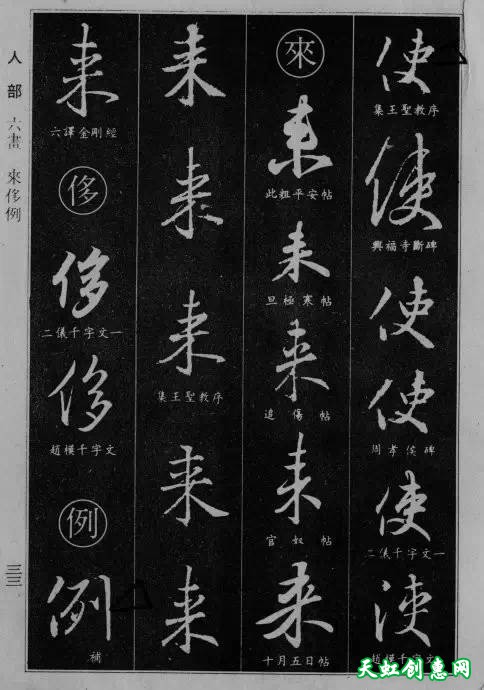 使
集王聖教序
使
興福寺斷碑
使
使
周孝侯碑
使
二儀千字文一
使
趙模千字文
來
来
此粗平安帖
来
旦極寒帖
来
追傷帖
来
官奴帖
来
十月五日帖
来
来
来
集王聖教序
来
来
来
六譯金剛經
侈
侈
二儀千字文一
侈
趙模千字文
例
例
補
人部 六畫 來侈例
三三
天虹创意网